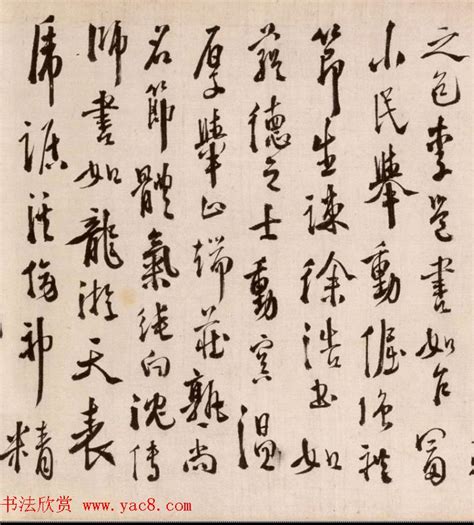 之色李邕書如乍富
小民舉動倔強禮
節生疎徐浩書如
蘊德之士動容温
厚舉止端莊敦尚
名節體氣純白沈傳
師書如龍游天表
虎踞溪傍神精
书法欣赏 www.yac8.com